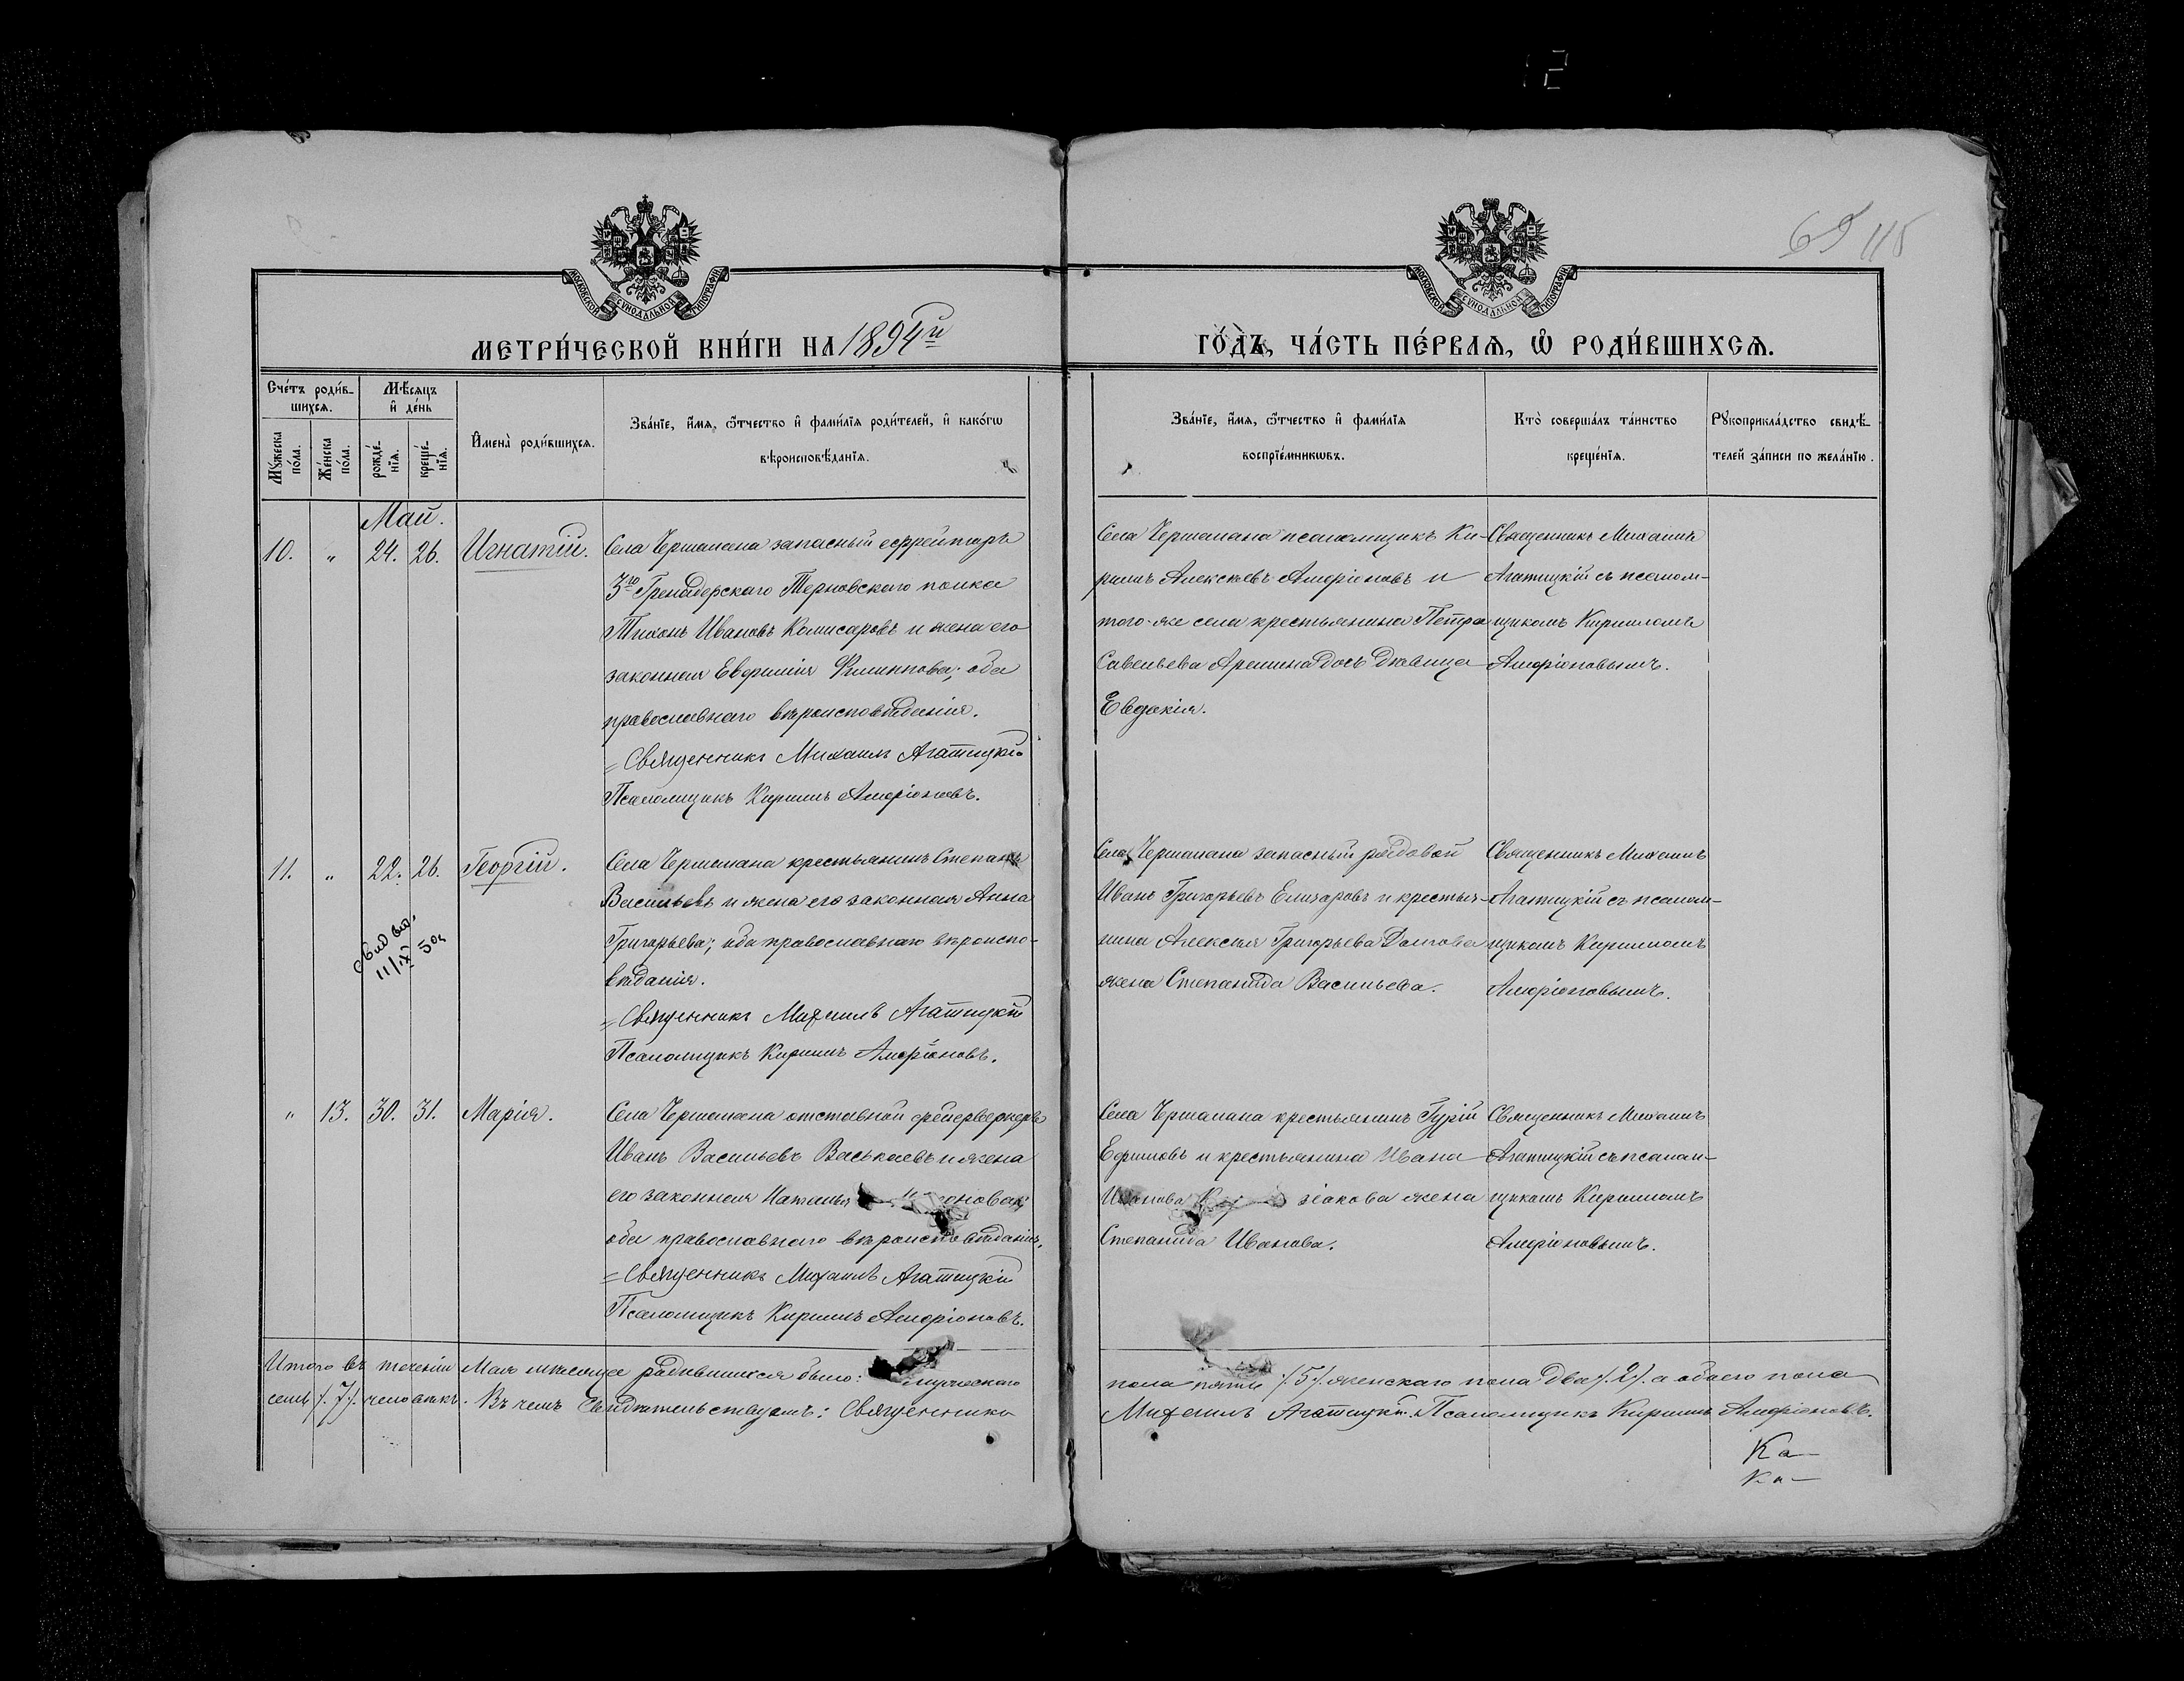 12
69 115
МОСКОВСКОЙ СѴНОДАЛЬНОЙ ТИПОГРАФІИ
МОСКОВСКОЙ СѴНОДАЛЬНОЙ ТИПОГРАФІИ
МЕТРИ́ЧЕСКОЙ КНИ́ГИ НА 1894й
ГО́ДЪ, ЧА́СТЬ ПЕ́РВАѦ, Ѡ РОДИ́ВШИХСѦ.
Сче́тъ роди́в-
шихсѧ.
Мꙋ́жеска по́ла.
Же́нска по́ла.
Мѣ́сѧцъ и҆ де́нь
рожде́-
нїѧ.
креще́-
нїѧ.
И҆мена̀ роди́вшихсѧ.
Зва́нїе, и҆́мѧ, ѻ҆́тчество и҆ фами́лїѧ роди́телей, и҆ како́гѡ
вѣроисповѣ́данїѧ.
Зва́нїе, и҆́мѧ, ѻ҆́тчество и҆ фами́лїѧ
воспрїе́мникѡвъ.
Кто̀ соверша́лъ та́инство
креще́нїѧ.
Рꙋкоприкла́дство свидѣ́-
телей за́писи по жела́нїю.
Май.
10. " 24. 26. Игнатій.
Села Чермалана запасный ефрейторъ
3го Гренадерскаго Перновскаго полка
Тихонъ Ивановъ Комисаровъ и жена его
законная Евфимія Филиппова; оба
православнаго вѣроисповѣданія.
= Священникъ Михаилъ Агатицкій
Псаломщикъ Кирилъ Амфіоновъ.
Села Чермалана псаломщикъ Ки-
рилъ Алексѣевъ Амфіоновъ и
того-же села крестьянина Петра
Савельева дочь дѣвица
Евдокія.
Священникъ Михаилъ
Агатицкій съ псалом-
щикомъ Кириломъ
Амфіоновымъ.
11. " 22. 26. Георгій.
11/IX 50г
Села Чермалана крестьянинъ Степанъ
Васильевъ и жена его законная Анна
Григорьева; оба православнаго вѣроиспо-
вѣданія.
= Священникъ Михаилъ Агатицкій
Псаломщикъ Кирилъ Амфіоновъ.
Села Чермалана запасный рядовой
Иванъ Григорьевъ Елизаровъ и крестья-
нина Алексѣя Григорьева Долгова
жена Степанида Васильева.
Священникъ Михаилъ
Агатицкій съ псалом-
щикомъ Кириломъ
Амфіоновымъ.
" 13. 30. 31. Марія.
Села Чермалана отставной фейерверкеръ
Иванъ Васильевъ Васькаевъ и жена
его законная Наталья
оба православнаго вѣроисповѣданія.
= Священникъ Михаилъ Агатицкій
Псаломщикъ Кирилъ Амфіоновъ.
Села Чермалана крестьянинъ Гурій
Ефимовъ и крестьянина Ивана
Иванова жена
Степанида Иванова.
Священникъ Михаилъ
Агатицкій съ псалом-
щикомъ Кириломъ
Амфіоновымъ.
Итого въ теченіи Мая мѣсяца родившихся было: мужескаго
пола пять /.5./. женскаго пола два /.2./. а обоего пола
семь /.7./. человѣкъ. Въ чемъ свидѣтельствуемъ: Священникъ
Михаилъ Агатицкій. Псаломщикъ Кирилъ Амфіоновъ.
Ка-
Ка-